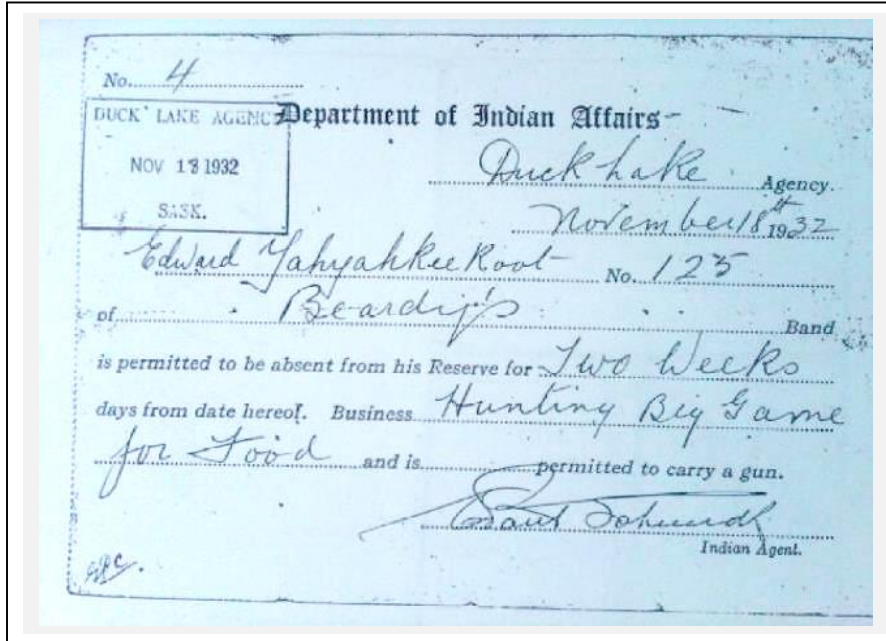 No. 4
DUCK LAKE AGENCY
Department of Indian Affairs
NOV 18 1932
SASK.
Duck Lake Agency.
November 18th 1932
Edward Yahyahkeekoot No. 125
of Beardy's Band
is permitted to be absent from his Reserve for Two Weeks
days from date hereof. Business Hunting Big Game
for Food and is permitted to carry a gun.
Indian Agent.